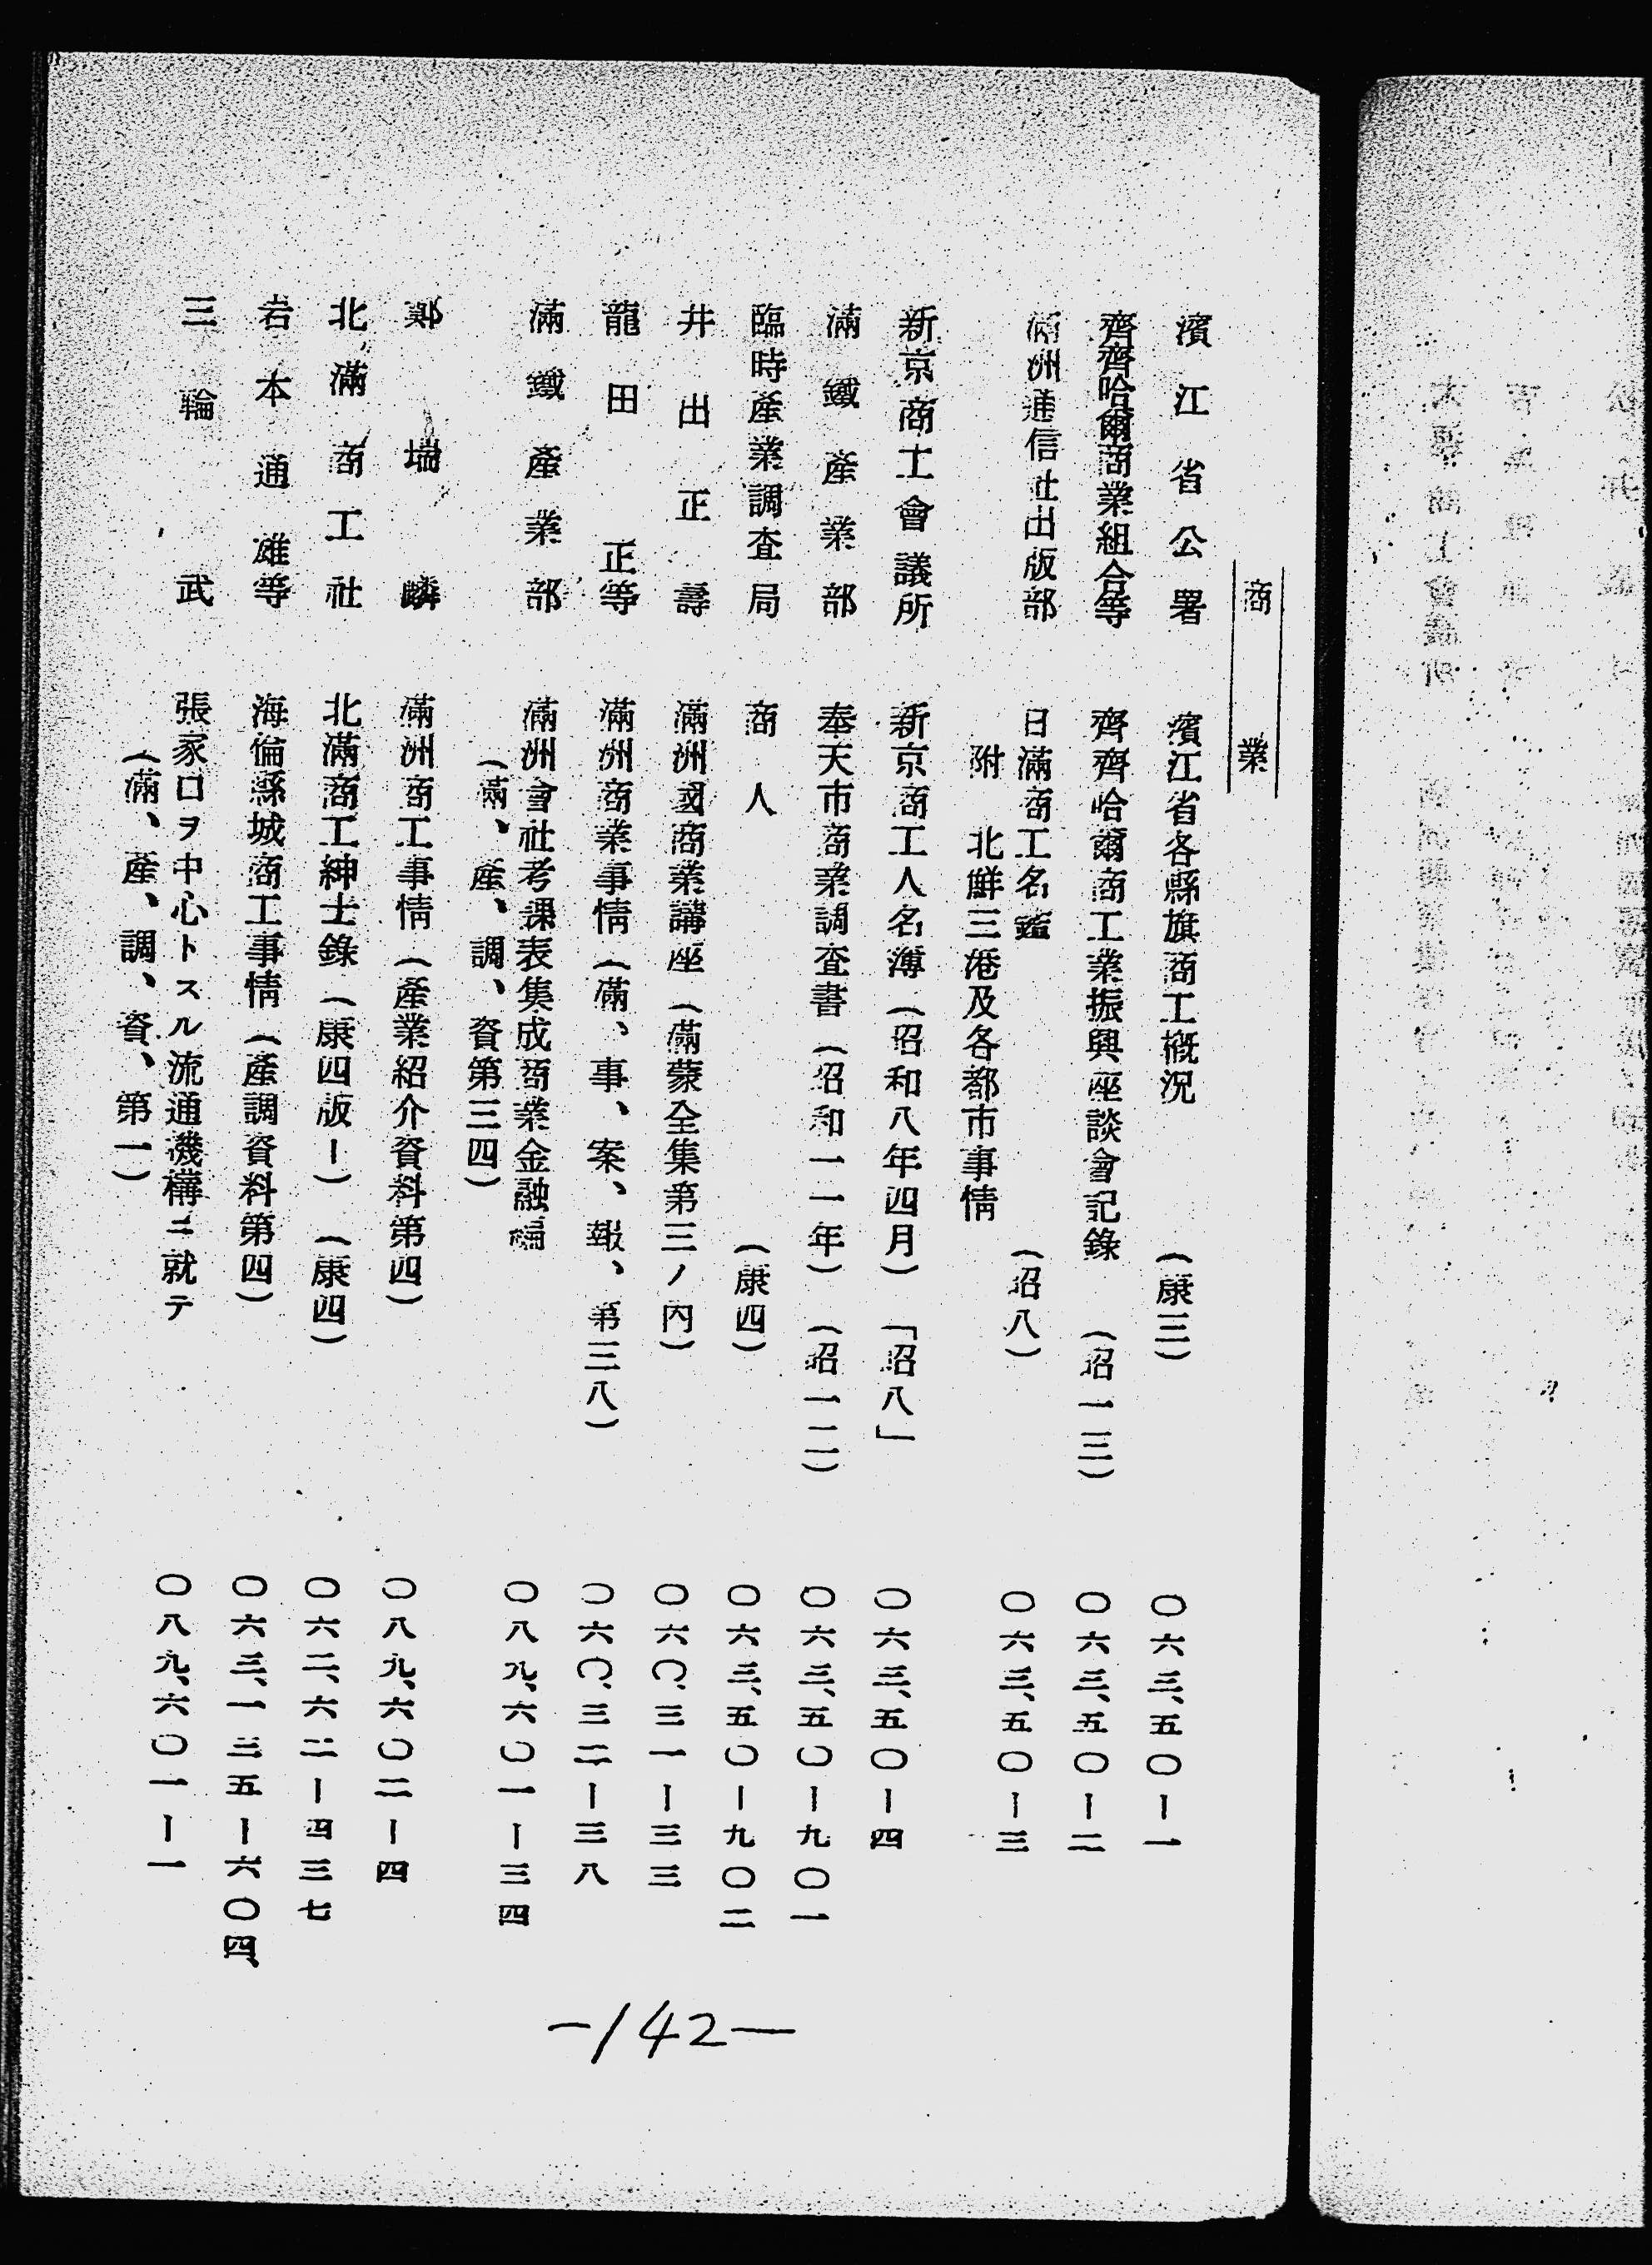 商業
濱江省公署 濱江省各縣旗商工槪況 (康三) 〇六三、五〇ー一
齊齊哈爾商業組合等 齊齊哈爾商工業振興座談會記錄 (昭一三) 〇六三、五〇ー二
滿洲通信社出版部 日滿商工名鑑 (昭八) 〇六三、五〇ー三
附 北鮮三港及各都市事情
新京商工會議所 新京商工人名簿(昭和八年四月)「昭八」 〇六三、五〇ー四
滿鐵產業部 奉天市商業調査書(昭和一一年)(昭一二) 〇六三、五〇ー九〇一
臨時產業調査局 商人 (康四) 〇六三、五〇ー九〇二
井出正壽 滿洲國商業講座(滿蒙全集第三ノ內) 〇六〇、三一ー三三
龍田正等 滿洲商業事情(滿、事、案、報、第三八) 〇六〇、三二ー三八
滿鐵產業部 滿洲會社考課表集成商業金融編 〇八九、六〇一ー三四
(滿、產、調、資第三四)
鄭瑞麟 滿洲商工事情(產業紹介資料第四) 〇八九、六〇二ー四
北滿商工社 北滿商工紳士錄(康四版ー)(康四) 〇六二、六二ー四三七
岩本通雄等 海倫縣城商工事情(產調資料第四) 〇六三、一三五ー六〇四、
三輪武 張家口ヲ中心トスル流通機構ニ就テ 〇八九、六〇一ー一
(滿、產、調、資、第一)
-142-